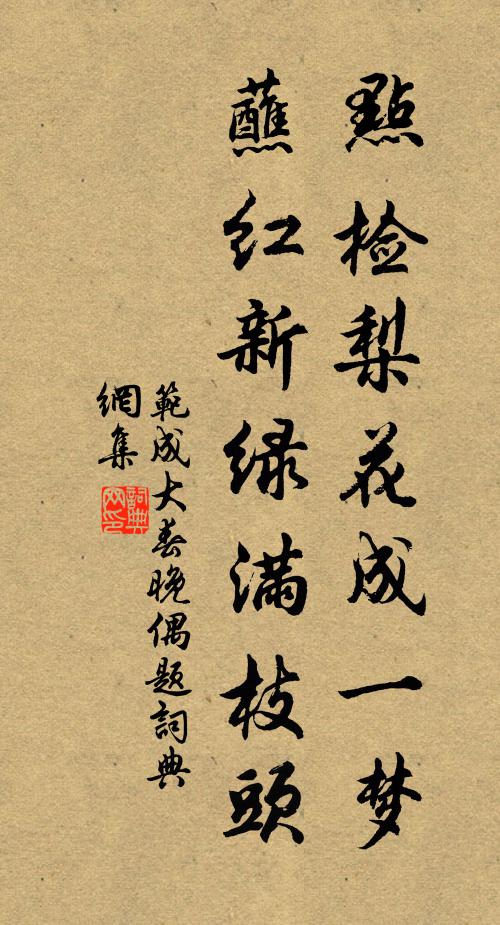 點检梨花成一梦
蘸红新绿满枝頭
範成大春晚偶題詞典
網集
詞典网印